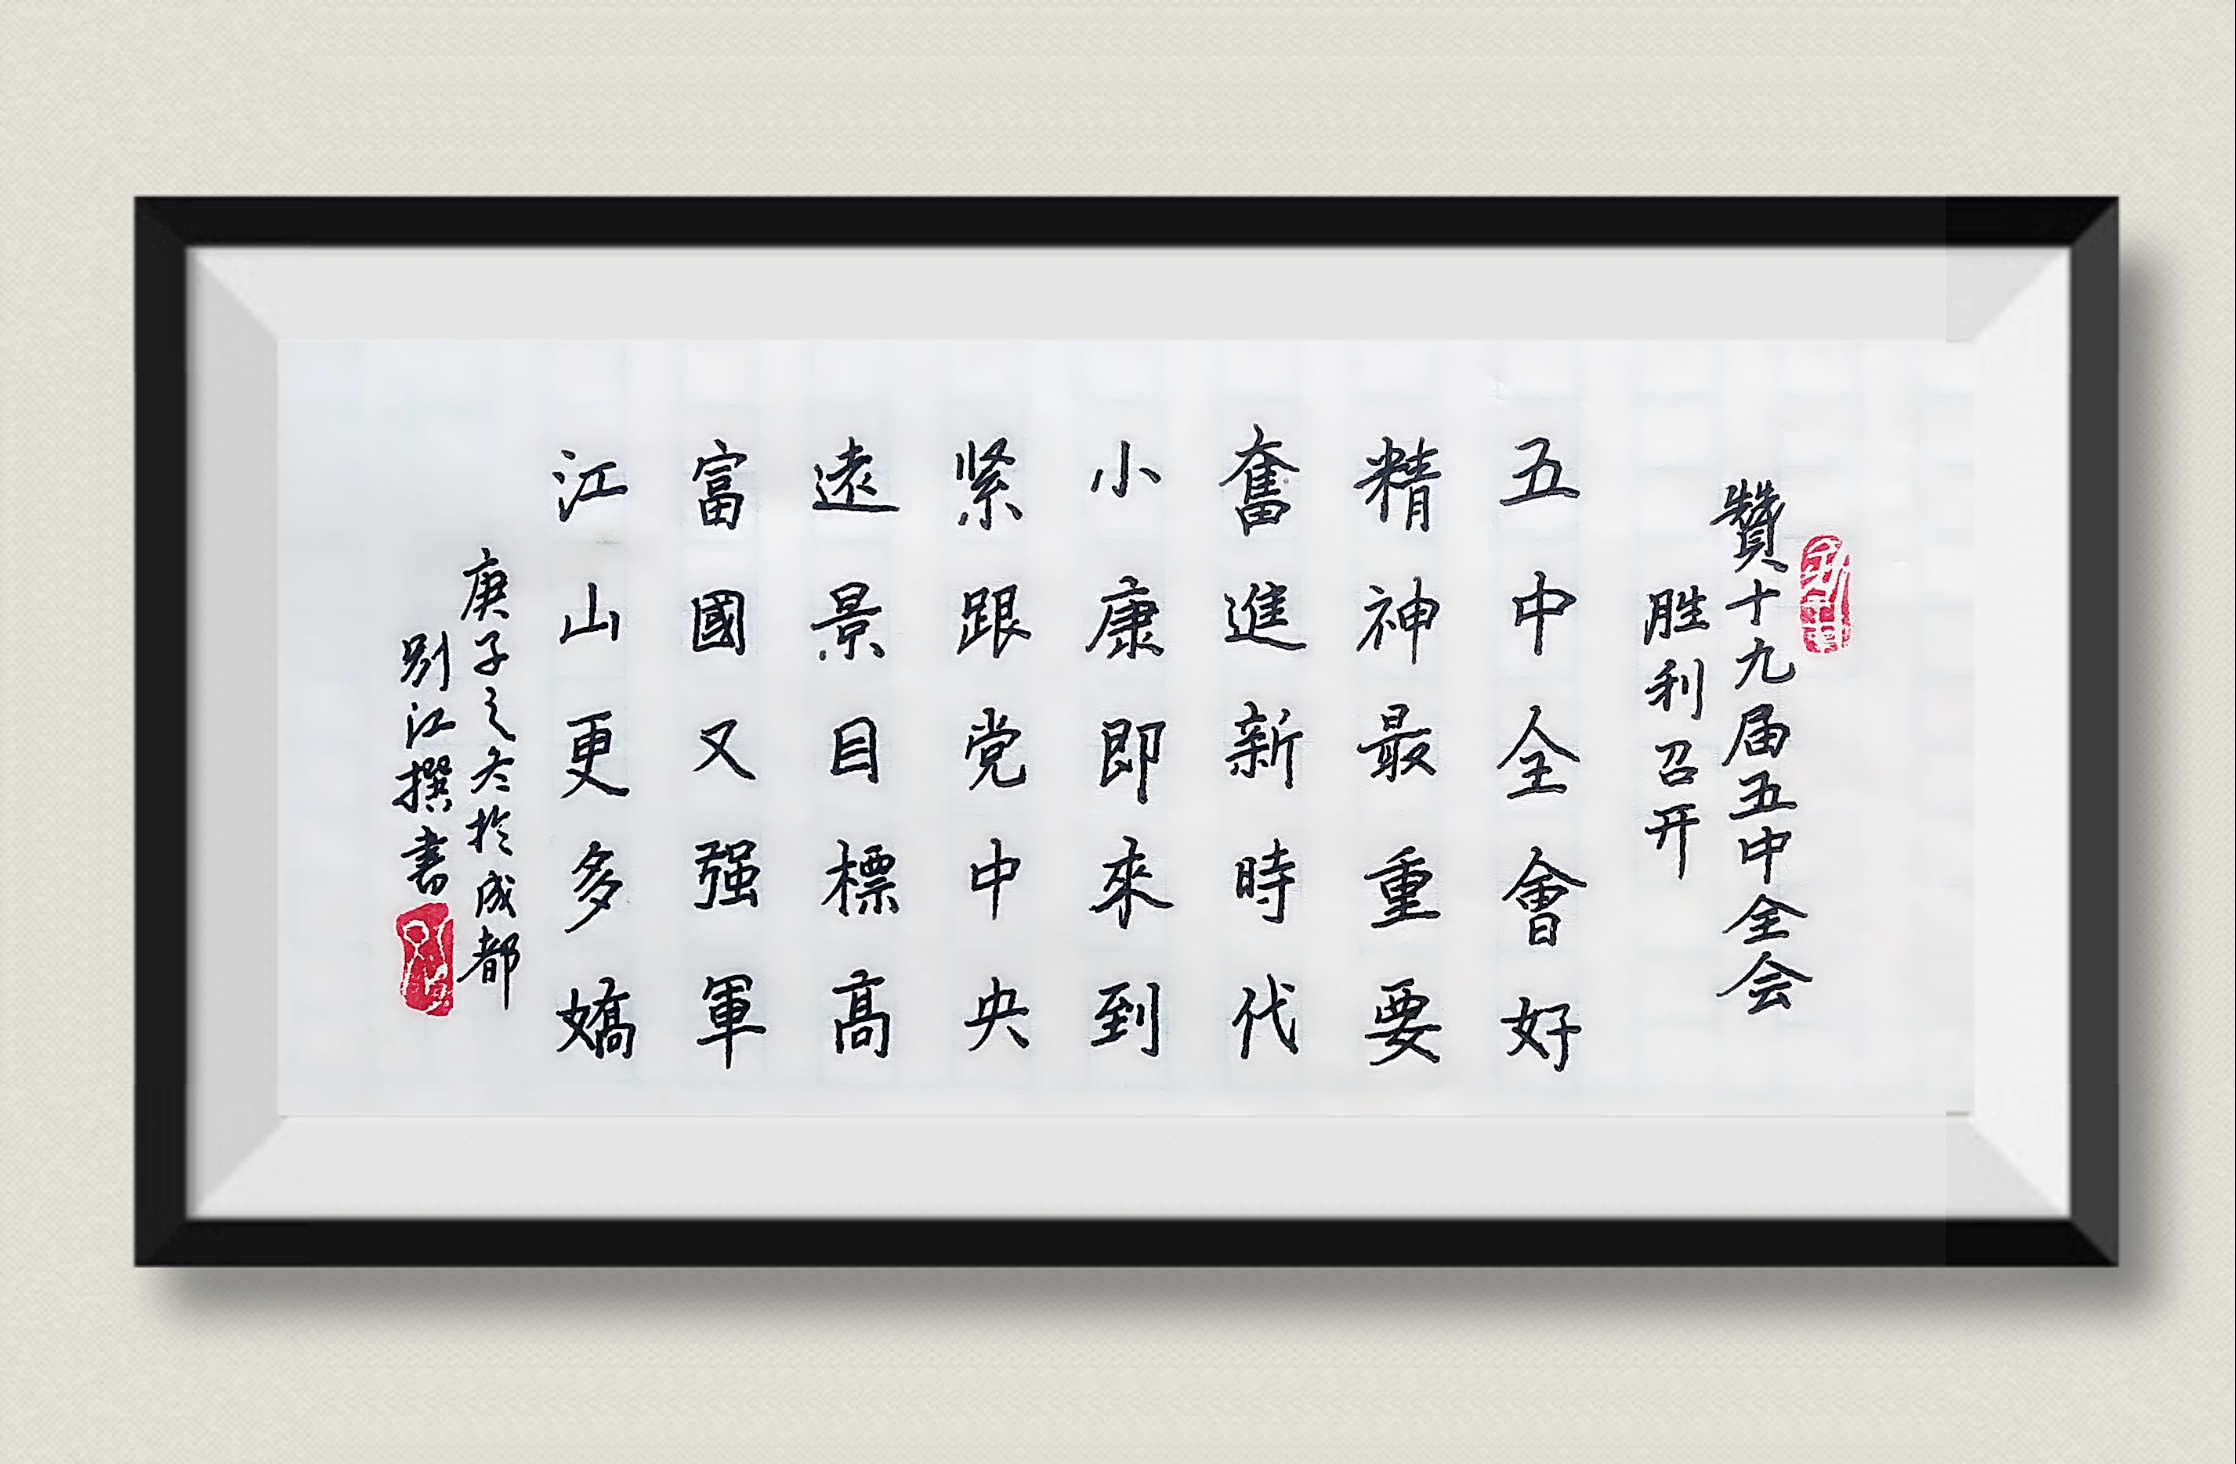 贊十九届五中全会
胜利召开
五中全會好
精神最重要
奮進新時代
小康即來到
紧跟党中央
遠景目標高
富國又强軍
江山更多嬌
庚子之冬於成都
别江撰書